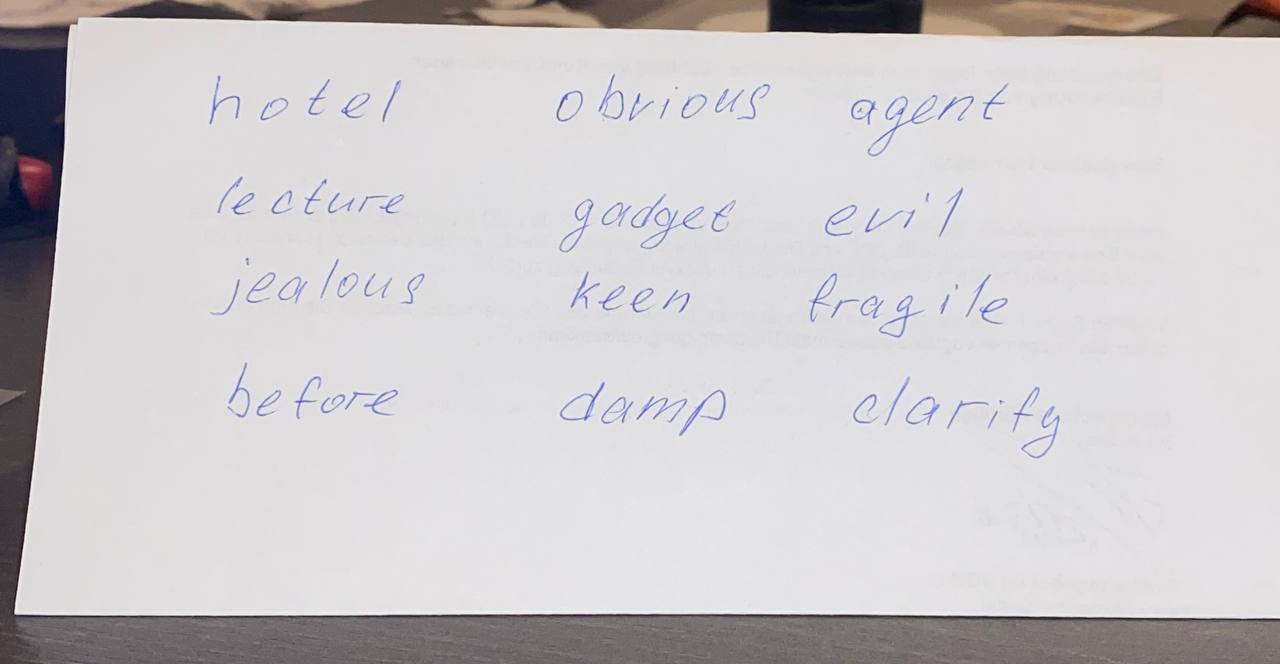 hotel obvious agent
lecture gadget evil
jealous keen fragile
before damp clarify